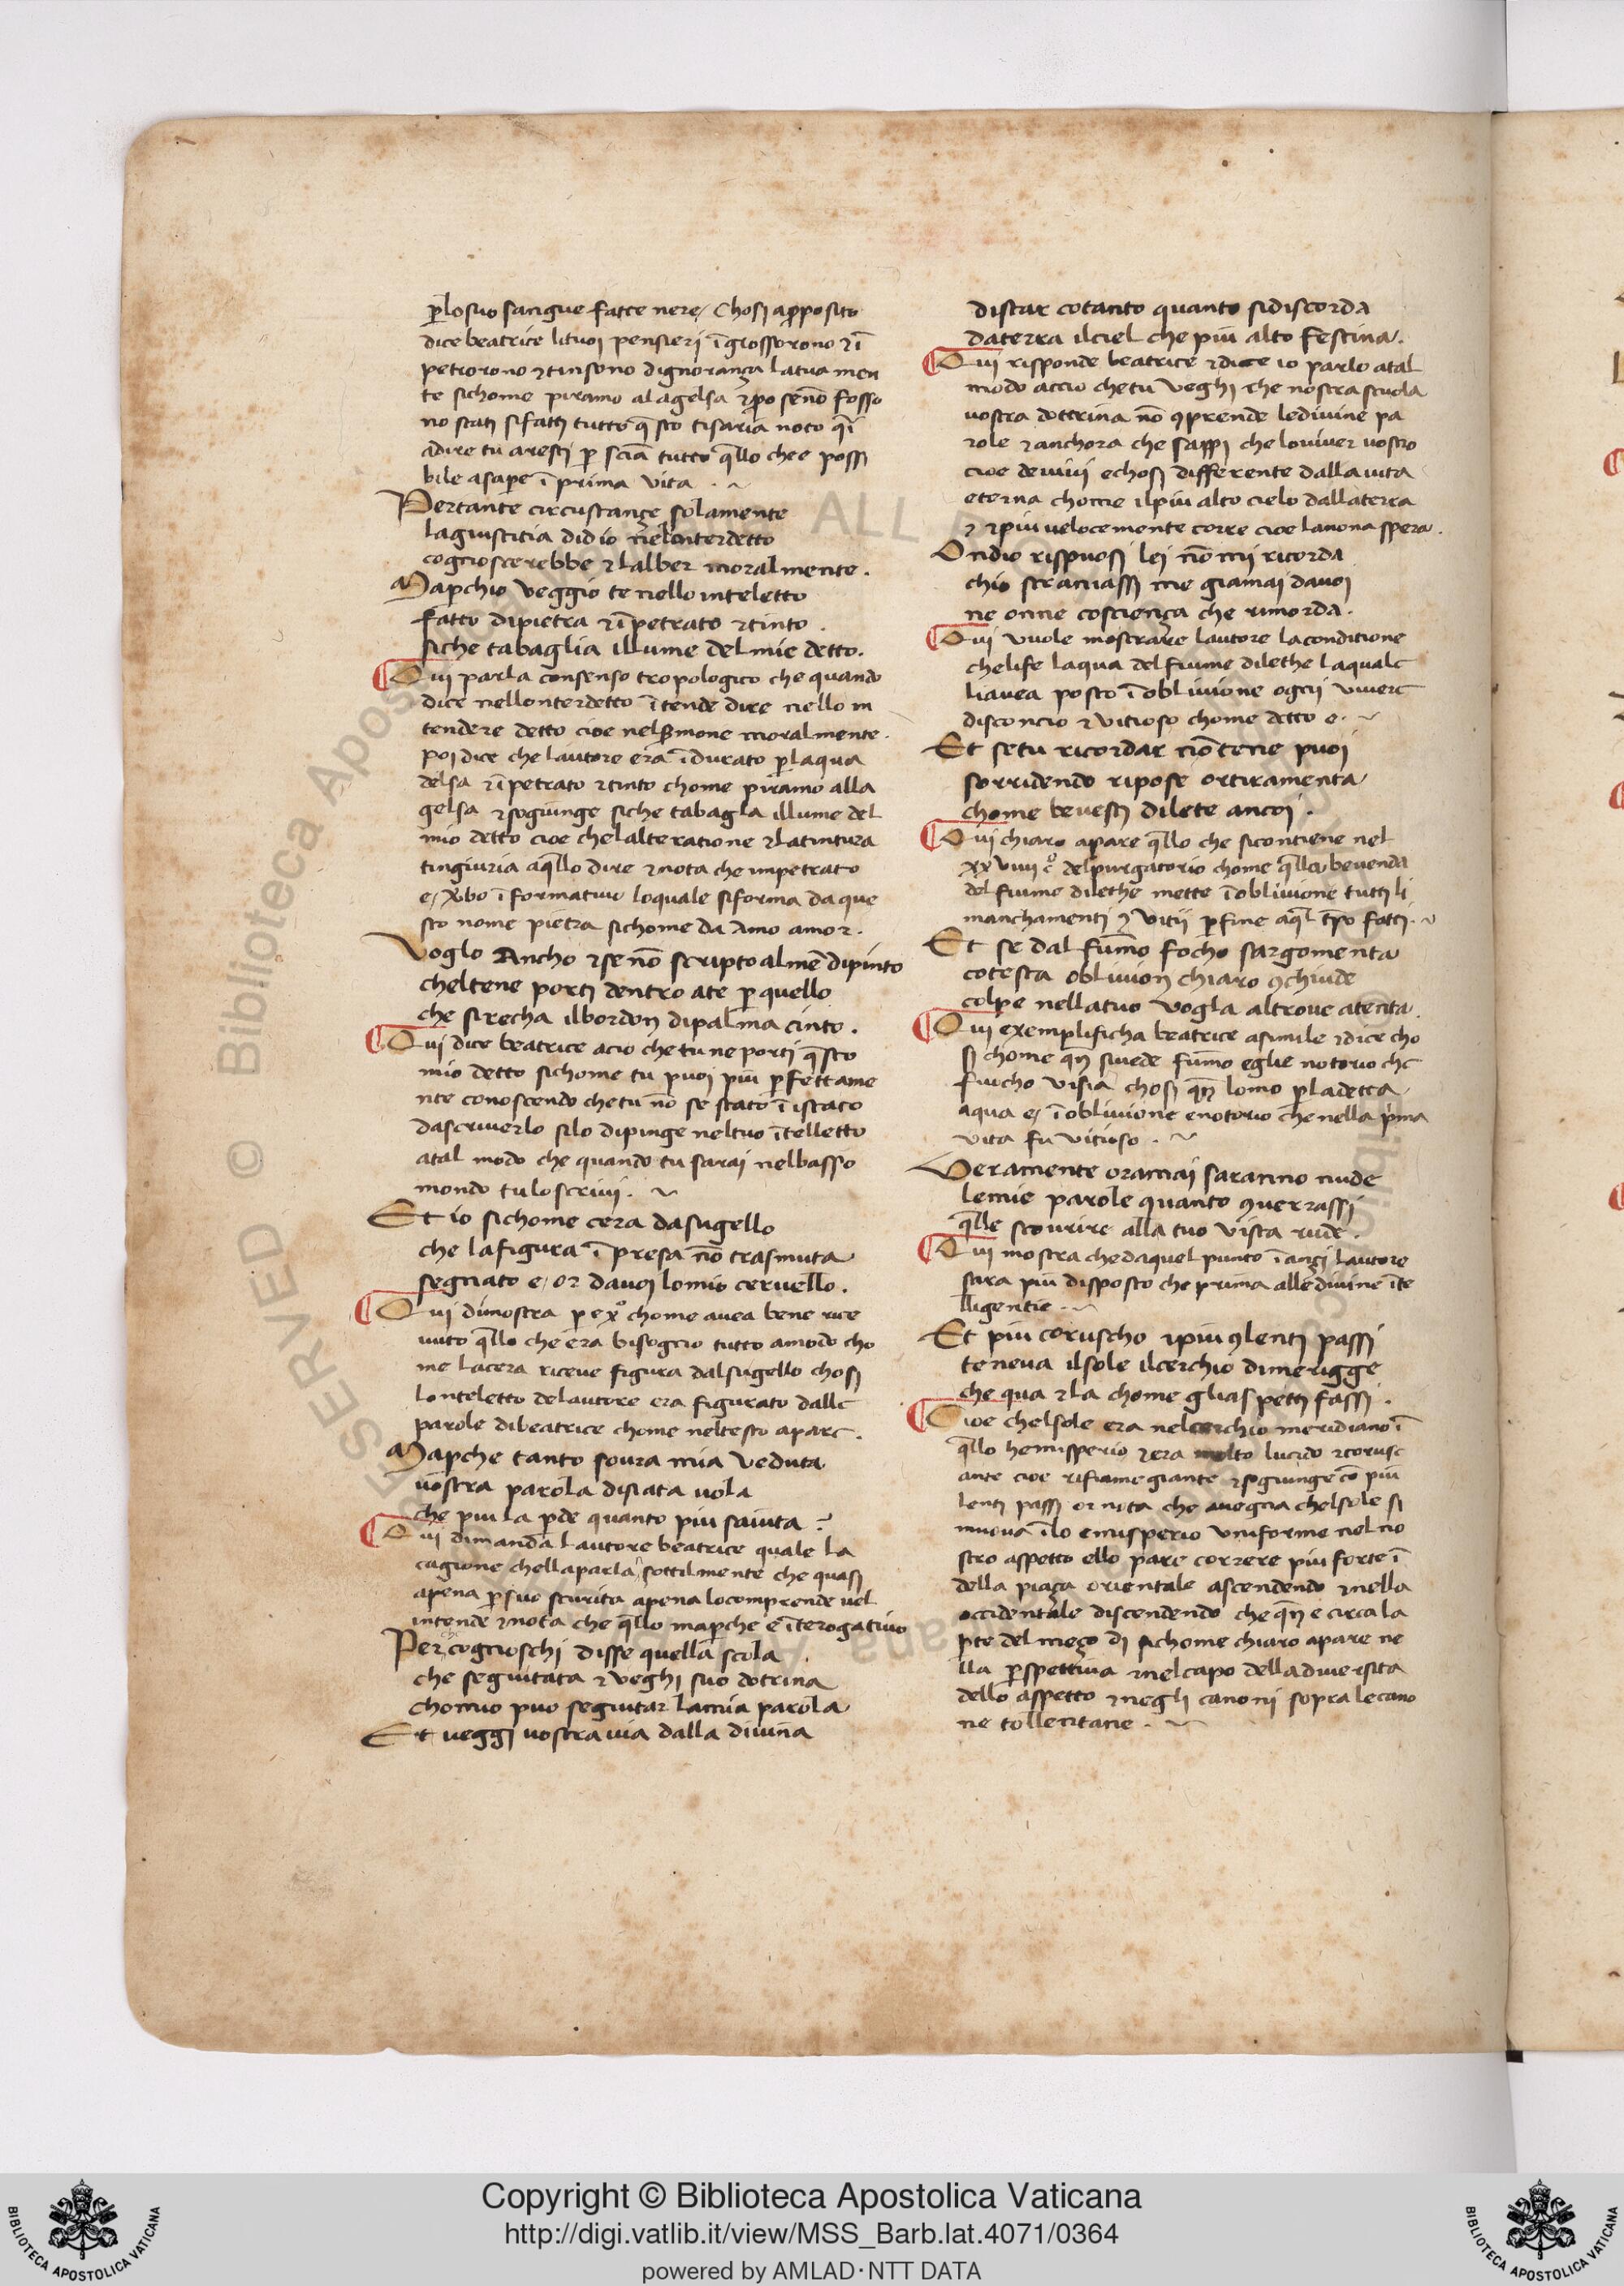 p̄lo suo sangue facte nere / Chosi a p̄posito
dice beatrice li tuoi pensieri ĩgrossorono ⁊ ĩ
petrorono ⁊ tinsono dignorança la tua men
te sichome piramo al agelsa ⁊ p̄o se nõ fosso
no stati si fatti tutto q̄sto ti saria noto q̄i
a dire tu aresti p̄ sciã tutto q̄llo che e possi
bile a sap̄e ĩ prima vita .
Per tante circustançe solamente
la giustitia didio nello nterdetto
cognioscerebbe ⁊ lalber moralmente .
Ma p̄chio veggio te nello inteletto
fatto di pietra ⁊ ĩpetrato ⁊ tinto .
siche tabaglia il lume del mie detto .
Qui parla con senso tropologico che quando
dice nello nterdetto ĩtende dire nello in
tendere detto cioe nel s̄mone moralmente .
poi dice che lautore era ĩdurato p̄ laqua
delsa ⁊ ĩpetrato ⁊ tinto chome piramo alla
gelsa ⁊ sogiunge siche tabagla il lume del
mio detto cioe che lalteratione ⁊ la tintura
tingiuria a q̄llo dire ⁊ nota che impetrato
e / v̄bo ĩformativo lo quale si forma da que
sto nome pietra sichome da Amo amor .
Voglo Ancho ⁊ se nõ scripto almẽ dipinto
cheltene porti dentro a te p̄ quello
che si recha il bordon di palma cinto .
Qui dice beatrice acio che tu ne porti q̄sto
mio detto sichome tu puoi piu p̄fettame
nte conoscendo che tu nõ se stato ĩ istato
da scriverlo si lo dipinge nel tuo ĩtelletto
a tal modo che quando tu sarai nel basso
mondo tu lo scrivi .
Et io sichome cera da sugello
che la figura ĩpresa nõ trasmuta
segnato e / or da voi lo mio cervello .
Qui dimostra p̄ ex̊ chome avea bene rice
vuto q̄llo che era bisognio tutto a modo cho
me la cera riceve figura dal sugello chosi
lonteletto de lautore era figurato dalle
parole di beatrice chome nel testo apare .
Ma p̄che tanto soura mia veduta
vostra parola disiata vola
che piu la p̄de quanto piu saiuta ?
Qui dimanda lautore beatrice quale la
cagione chella parla sottilmente che quasi
apena p̄ suo scurita apena lo comprende vel
intende ⁊ nota che q̄llo ma p̄che e ĩterogativo
Per che cognioschi disse quella scola
che seguitata ⁊ veghi suo dotrina
chomuo puo seguitar la mia parola
Et veggi vostra via dalla divina
distar cotanto quanto si discorda
da terra il ciel che piu alto festina .
Qui risponde beatrice ⁊ dice io parlo a tal
modo accio che tu veghi che nostra scuola
vostra dottrina nõ ꝯprende le divine pa
role ⁊ anchora che sappi che lo viver vostro
cioe de vivi e chosi differente dalla vita
eterna chome il piu alto cielo dalla terra
⁊ piu velocemente corre cioe la nona spera .
Ondio rispuosi lei nõ mi ricorda
chio straniassi me giamai da voi
ne onne cosciença che rimorda .
Qui vuole mostrare lautore la conditione
che li fe laqua del fiume di lethe la quale
li avea posto ĩ oblivione ognii vivere
disconcio ⁊ vitioso chome detto e .
Et se tu ricordar nõ tene puoi
sorridendo ripose or ti ramenta
chome bevesti di lete ancoi .
Qui chiaro apare q̄llo che si contiene nel
xxviii c̊ del purgatorio chome q̄lla bevenda
del fiume di lethe mette ĩ oblivione tutti li
manchamenti ⁊ vitii p̄fine a q̄l tp̃o fatti .
Et se dal fumo focho sargomenta
cotesta oblivion chiaro ꝯchiude
colpe nella tuo vogla altrove atenta .
Qui exemplificha beatrice a simile ⁊ dice cho
si chome qñ si vede fumo eglie notorio che
fuicho vi sia chosi qñ lomo p̄ la detta
aqua e / ĩ oblivione e notorio che nella p̃ma
vita fu vitioso .
Veramente oramai saranno nude
le mie parole quanto ꝯverrassi
q̄lle scovrire alla tuo vista rude .
Qui mostra che da quel punto ĩançi lautore
sara piu disposto che prima alle divine ĩte
lligentie .
Et piu coruscho ⁊ piu ꝯ lenti passi
teneva il sole il cerchio di merigge
che qua ⁊ la chome gli aspetti fassi .
Cioe chel sole era nel cerchio meridiano ĩ
q̄llo hemisperio ⁊ era molto lucido ⁊ corusc
ante cioe rifiamegiante ⁊ sogiunge cõ piu
lenti passi or nota che avegna chel sole si
muova ĩ lo emisperio uniforme nel no
stro aspetto ello pare correre piu forte ĩ
della piaça orientale ascendendo ⁊ nella
occidentale discendendo che qñ e circa la
p̄te del meço di sichome chiaro apare ne
lla p̄spettiva ⁊ nel capo della diversita
dello aspetto ⁊ negli canoni sopra le cano
ne tollentane .
Copyright © Biblioteca Apostolica Vaticana
http://digi.vatlib.it/view/MSS_Barb.lat.4071/0364
powered by AMLAD·NTT DATA
BIBLIOTECA APOSTOLICA VATICANA
BIBLIOTECA APOSTOLICA VATICANA